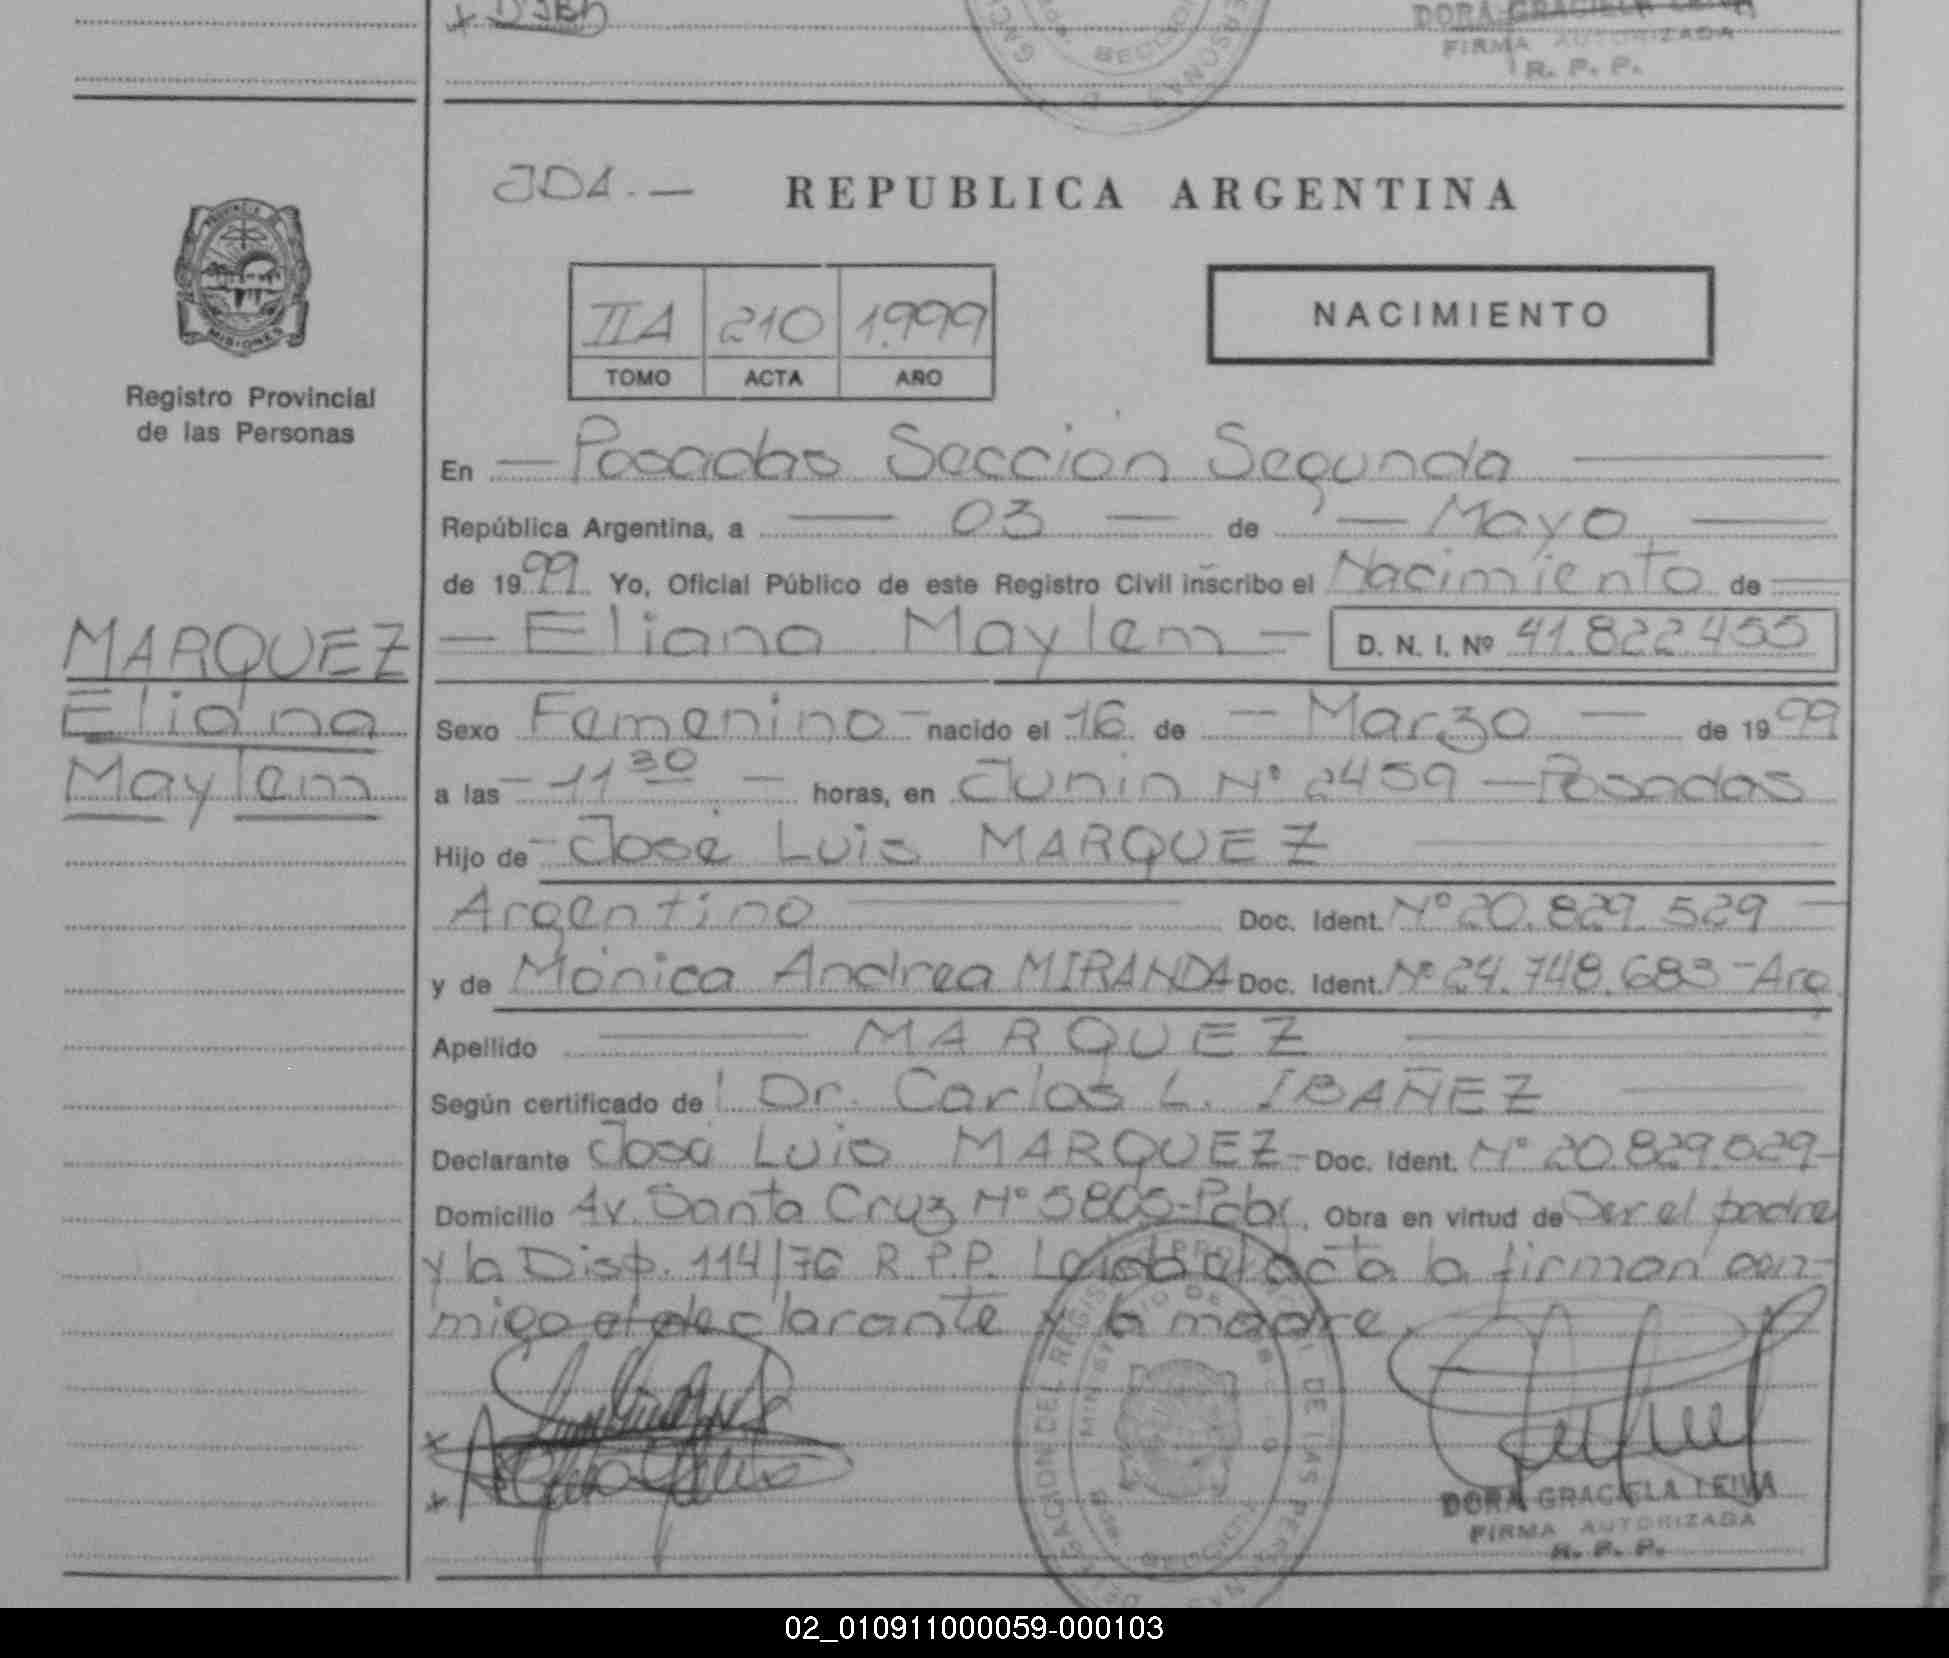 DORA GRACIELA LEIVA
FIRMA AUTORIZADA
R. P. P.
PROVINCIA DE
MISIONES
Registro Provincial
de las Personas
MARQUEZ
Eliana
Maylem
REPUBLICA ARGENTINA
IIA 210 1.999
TOMO ACTA AÑO
NACIMIENTO
En — Posadas Sección Segunda —
República Argentina, a — 03 — de — Mayo —
de 1999 Yo, Oficial Público de este Registro Civil inscribo el Nacimiento de —
— Eliana Maylem — D. N. I. Nº 41.822.455
Sexo Femenino — nacido el 16 de — Marzo — de 1999
a las — 11 30 — horas, en Junin Nº 2459 — Posadas
Hijo de — José Luis MARQUEZ —
Argentino — Doc. Ident. Nº 20.829.529 —
y de Mónica Andrea MIRANDA Doc. Ident. Nº 24.748.683 - Arg
Apellido — MARQUEZ —
Según certificado de Dr. Carlos L. IBAÑEZ —
Declarante José Luis MARQUEZ - Doc. Ident. Nº 20.829.529 -
Domicilio Av. Santa Cruz Nº 5805 - Pdas. Obra en virtud de Ser el padre
y la Disp. 114/76 R.P.P. Leida el acta la firman con-
migo el declarante y la madre.
DORA GRACIELA LEIVA
FIRMA AUTORIZADA
R. P. P.
02_010911000059-000103